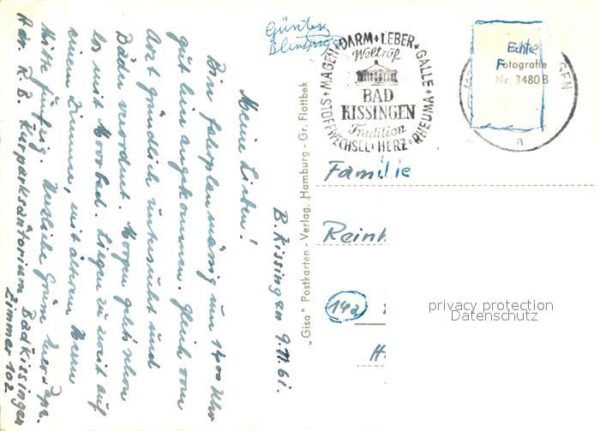 B. Kissingen 9.11.61.
Meine Lieben!
Bin fahrplanmässig um 1400 Uhr
gut hier angekommen. Gleich vom
Arzt gründlich untersucht und
Bäder verordnet. Morgen geht's schon
los mit Moorbad. Liegen zu zweit auf
einem Zimmer, mit älterem Herrn
Mitte fünfzig. Herzliche Grüße Euer
Abs. K. B. Kurparksanatorium Bad Kissingen
Zimmer 102
„Gisa" Postkarten-Verlag, Hamburg - Gr. Flottbek
Günter
STOFFWECHSEL · MAGEN · DARM · LEBER · GALLE · RHEUMA · HERZ
Weltruf
BAD
KISSINGEN
Tradition
Echte
Fotografie
Nr. 3480 B
a
Familie
Reinh
(14a)
privacy protection
Datenschutz